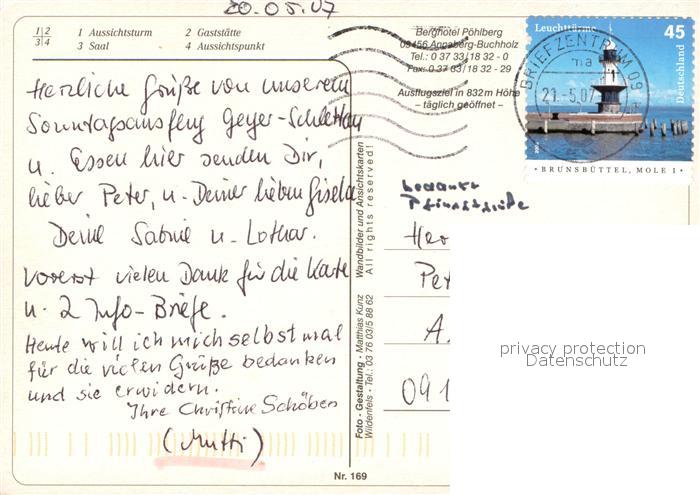 20.05.07
1|2
3|4
1 Aussichtsturm 2 Gaststätte
3 Saal 4 Aussichtspunkt
Berghotel Pöhlberg
09456 Annaberg-Buchholz
Tel.: 0 37 33/18 32-0
Fax: 0 37 33/18 32-29
Ausflugsziel in 832 m Höhe
– täglich geöffnet –
Leuchttürme 45
Deutschland
BRIEFZENTRUM 09
ma
21.-5.07
· BRUNSBÜTTEL, MOLE 1 ·
Herzliche Grüße von unserem
Sonntagsausflug Geyer-Schlettau
u. Essen hier senden Dir,
lieber Peter, u. Deiner lieben Gisela
Deine Sabine u. Lothar.
Vorerst vielen Dank für die Karte
u. 2 Info-Briefe.
Heute will ich mich selbst mal
für die vielen Grüße bedanken
und sie erwidern.
Ihre Christine Schöben
(Mutti)
Foto · Gestaltung · Matthias Kunz Wandbilder und Ansichtskarten
Wildenfels · Tel.: 03 76 03/5 88 62 All rights reserved!
Nr. 169
Her
Pet
A.
091
privacy protection
Datenschutz